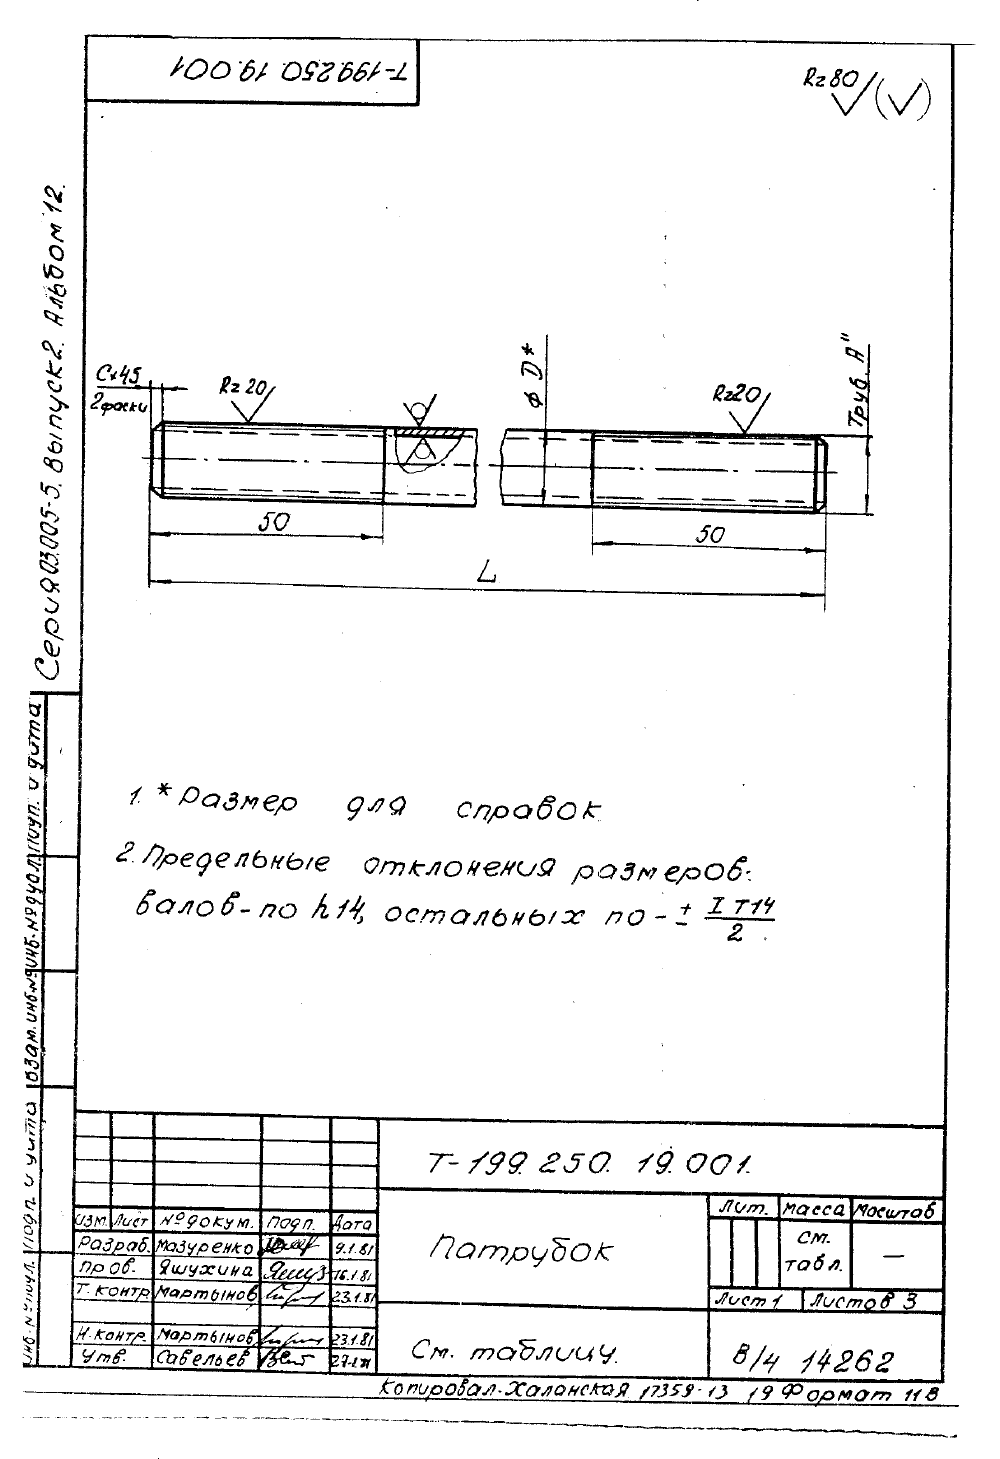 Т-199.250.19.001
Rz80 (√)
Серия 03.005-5. Выпуск 2. Альбом 12.
С×45
2 фаски
Rz 20
ϕ D*
Rz20
Труб. А"
50
50
L
1. * Размер для справок
2. Предельные отклонения размеров:
валов-по h14, остальных по - ± IT14/2.
Инв.№ подл. Подп. и дата Взам.инв.№ Инв.№ дубл. Подп. и дата
Т-199.250.19.001.
Изм. Лист № докум. Подп. Дата
Лит. Масса Масштаб
Разраб. Мазуренко 9.1.81
Пров. Яшухина 16.1.81
Т. контр. Мартынов 23.1.81
Патрубок
см. табл. —
Лист 1 Листов 3
Н.контр. Мартынов 23.1.81
Утв. Савельев
См. таблицу.
В/ч 14262
Копировал-Халанская 17359-13 19 Формат 11В